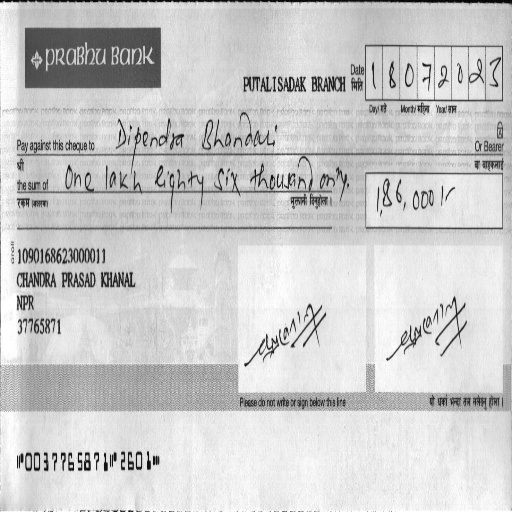 PRABHU BANK
PUTALISADAK BRANCH
Date 18072023
मिति
Day/ गते Month/ महिना Year/ साल
Pay against this cheque to Dipendra Bhandari Or Bearer
श्री वा वाहकलाई
the sum of One lakh Eighty Six thousand only. 1,86,000/-
रकम (अक्षरमा) भुक्तानी दिनुहोला ।
1090168623000011
CHANDRA PRASAD KHANAL
NPR
37765871
Please do not write or sign below this line यो धर्का भन्दा तल नलेख्नु होला ।
⑈0037765871⑈2601⑈